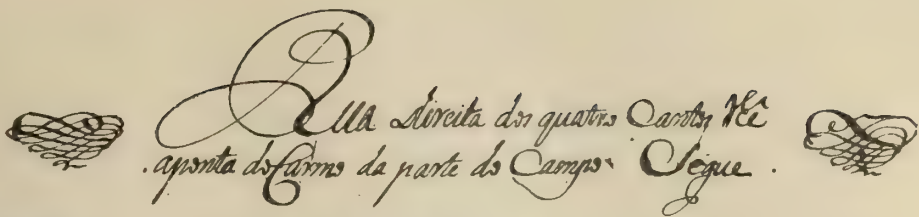 Rua direita dos quatro Cantos athe
aponta do Carmo da parte do Campo Segue.